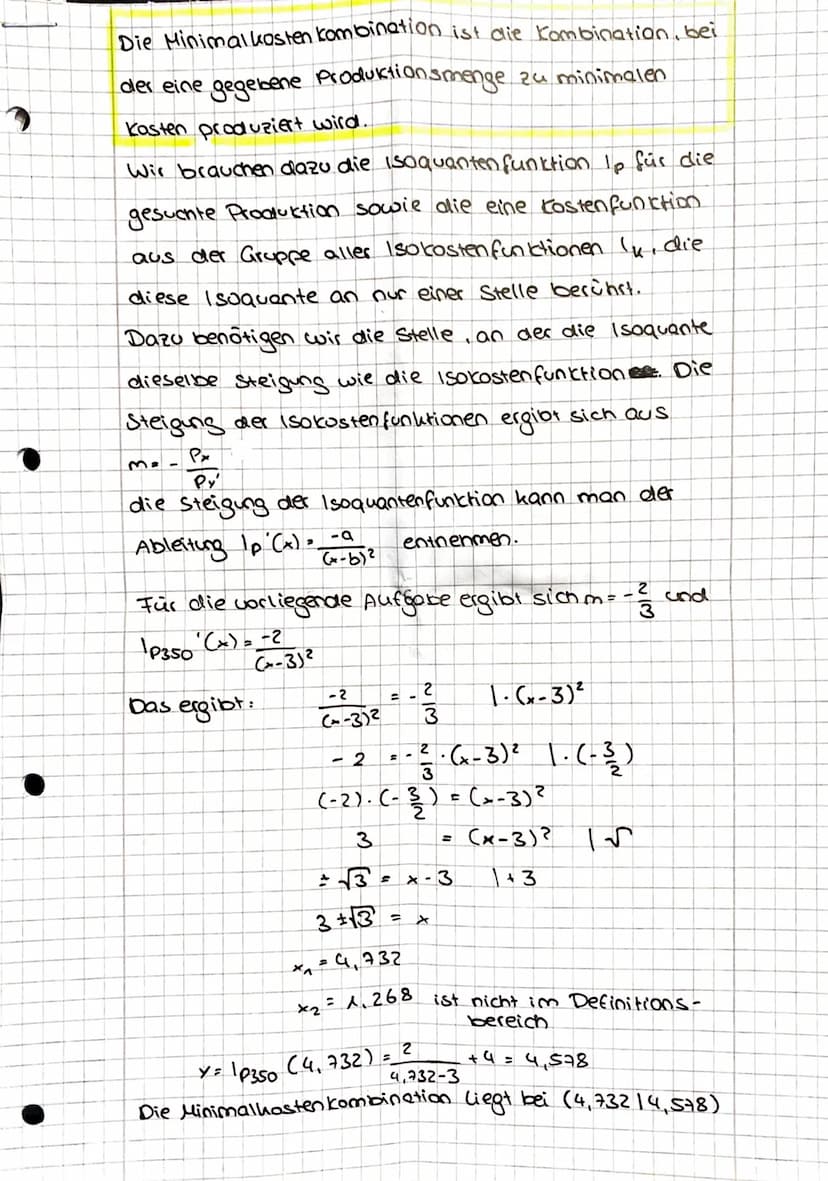 Die Minimalkostenkombination ist die Kombination, bei
der eine gegebene Produktionsmenge zu minimalen
Kosten produziert wird.
Wir brauchen dazu die Isoquantenfunktion Ip für die
gesuchte Produktion sowie die eine Kostenfunktion
aus der Gruppe aller Isokostenfunktionen Ik, die
diese Isoquante an nur einer Stelle berührt.
Dazu benötigen wir die Stelle, an der die Isoquante
dieselbe Steigung wie die Isokostenfunktion. Die
Steigung der Isokostenfunktionen ergibt sich aus
m = - Px/Py,
die Steigung der Isoquantenfunktion kann man der
Ableitung Ip'(x) = -a/(x-b)² entnehmen.
Für die vorliegende Aufgabe ergibt sich m = -2/3 und
IP350'(x) = -2/(x-3)²
Das ergibt: -2/(x-3)² = -2/3 | · (x-3)²
-2 = -2/3 · (x-3)² | · (-3/2)
(-2) · (-3/2) = (x-3)²
3 = (x-3)² | √
± √3 = x - 3 | + 3
3 ± √3 = x
x₁ = 4,732
x₂ = 1,268 ist nicht im Definitions-
bereich
y = IP350 (4,732) = 2/(4,732-3) + 4 = 4,578
Die Minimalkostenkombination liegt bei (4,732 | 4,578)